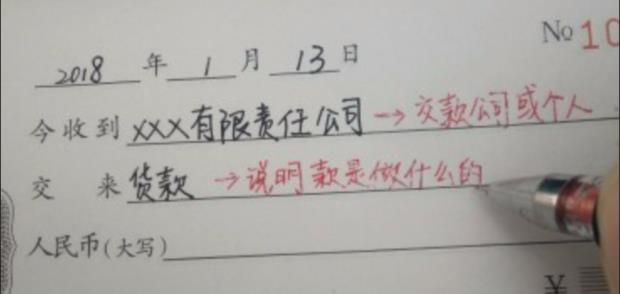 No 10
2018 年 1 月 13 日
今收到 XXX有限责任公司 → 交款公司或个人
交 来 货款 → 说明款是做什么的
人民币(大写)
¥